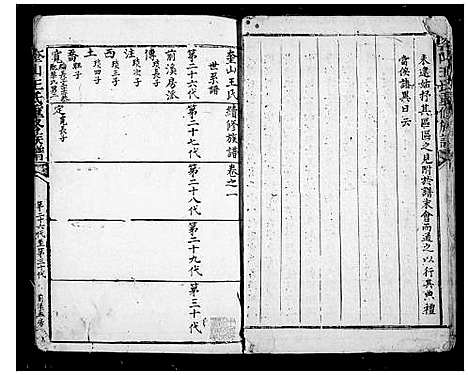 未遑姑抒其區區之見附於譜末會而通之以行典禮
當俟諸異日云
奎山王氏續修族譜 卷之一
世系譜
第二十六代 第二十七代 第二十八代 第二十九代 第三十代
前溪居派
傳 琰長子
注 琰次子
西 琰三子
土 琰四子
番 子
寬 定 寬長子
第二十六代至第三十代